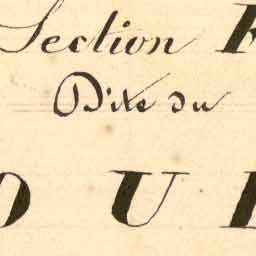 Section F
Dite du
O U